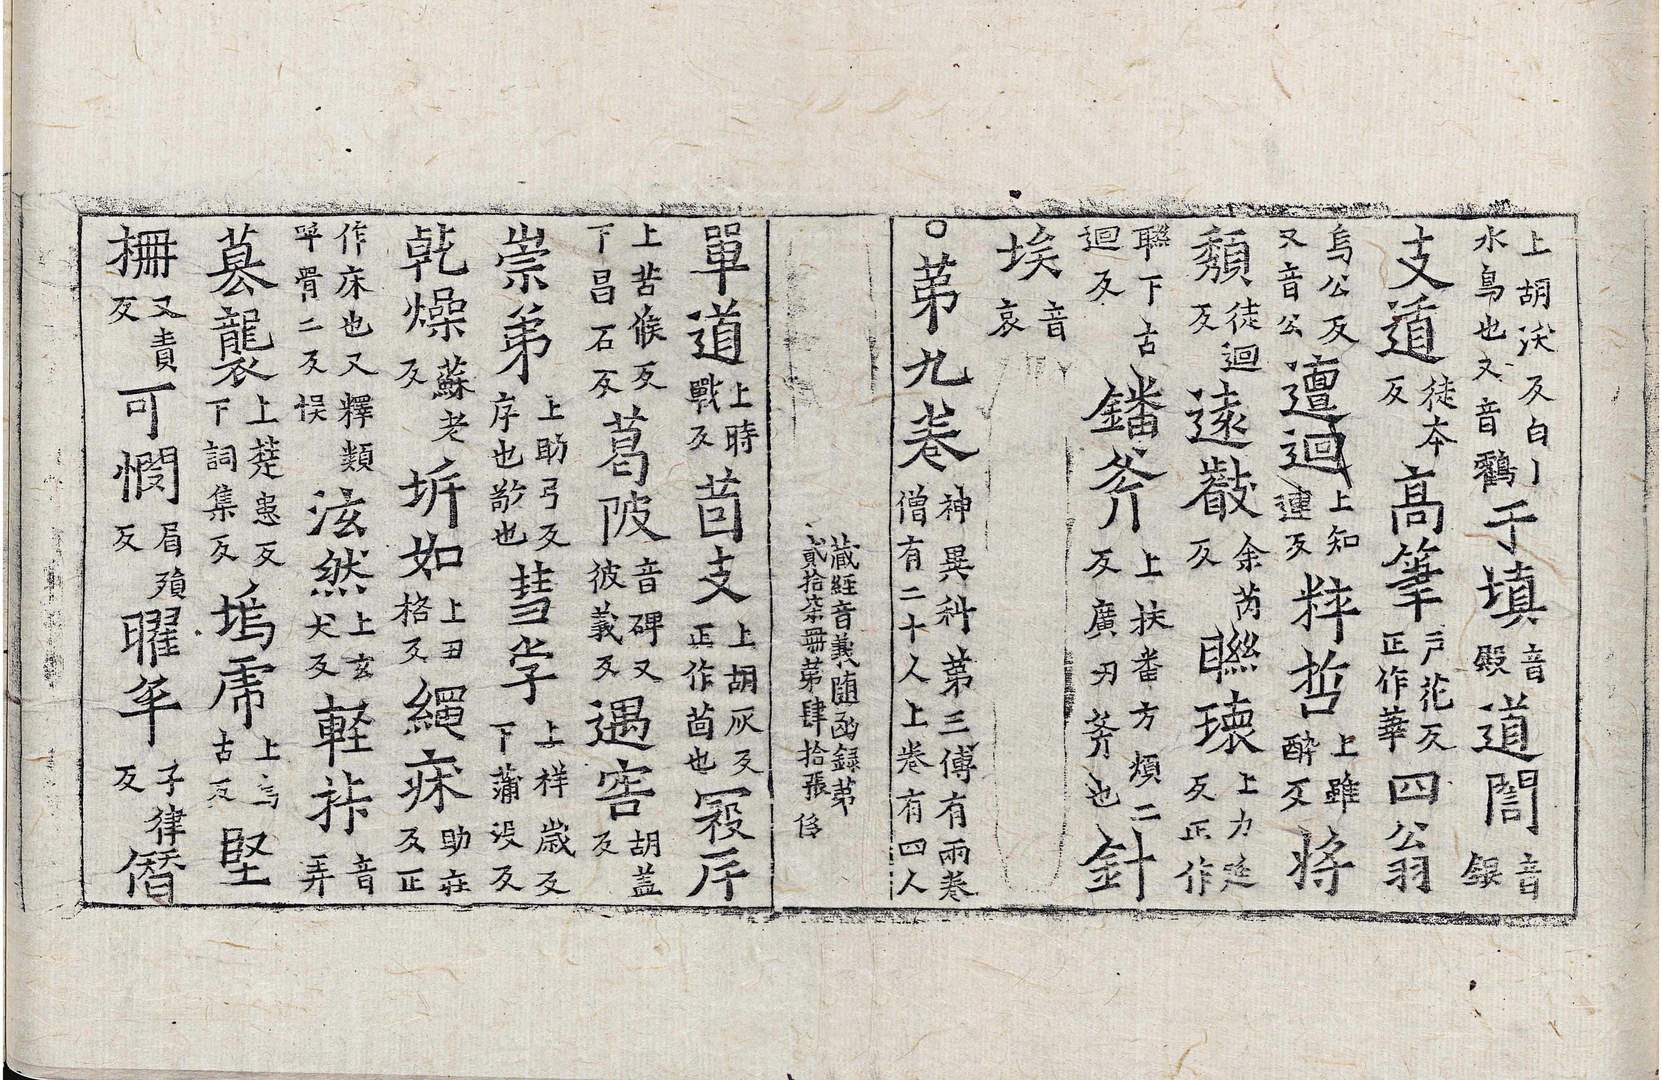 上胡沃反白丨水鳥也又音鸛于填音殿道誾音銀
支遁徒本反高筆戸花反正作華四公翁
烏公反又音公邅迴上知連反粹哲上雖醉反将
頽徒迴反遠㪡余芮反聮瓌上力延反正作
聮下古迴反鐇斧上扶番方煩二反廣刃斧也針
埃音哀
○第九卷神異科第三傅有兩卷僧有二十人上卷有四人
藏經音義随函録第貳拾柒冊第肆拾張
單道上時戰反茵支上胡灰反正作茴也冣斥
上苦候反下昌石反葛陂音碑又彼義反遇害胡盖反
崇弟上助弓反序也敬也彗孛上祥歲反下蒲没反
乹燥蘇老反坼如上丑格反繩床助庄反正
作床也又釋類呼骨二反悮泫然上玄犬反輊祚音弄
篡襲上楚患反下詞集反塢虎上烏古反堅
柵叉責反可憫眉殞反曜卒子律反僭